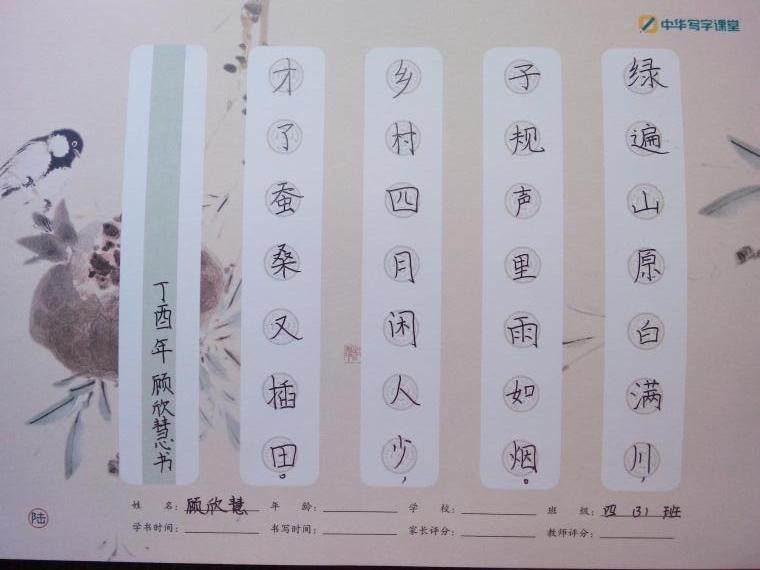 中华写字课堂
绿遍山原白满川，
子规声里雨如烟。
乡村四月闲人少，
才了蚕桑又插田。
丁酉年 顾欣慧书
姓 名：顾欣慧 年 龄： 学 校： 班 级：四（3）班
学书时间： 书写时间： 家长评分： 教师评分：
陆